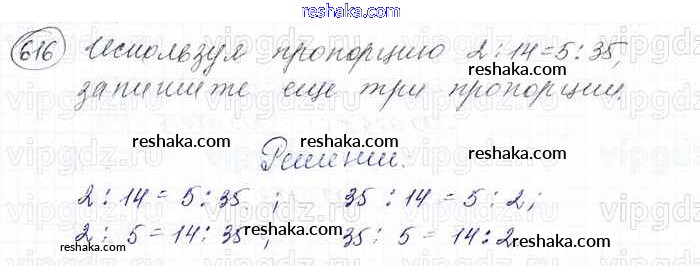 reshaka.com
616 Используя пропорцию 2:14=5:35,
запишите еще три пропорции.
reshaka.com reshaka.com
reshaka.com reshaka.com
Решение.
reshaka.com reshaka.com
2:14=5:35; 35:14=5:2;
2:5=14:35; 35:5=14:2
reshaka.com reshaka.com